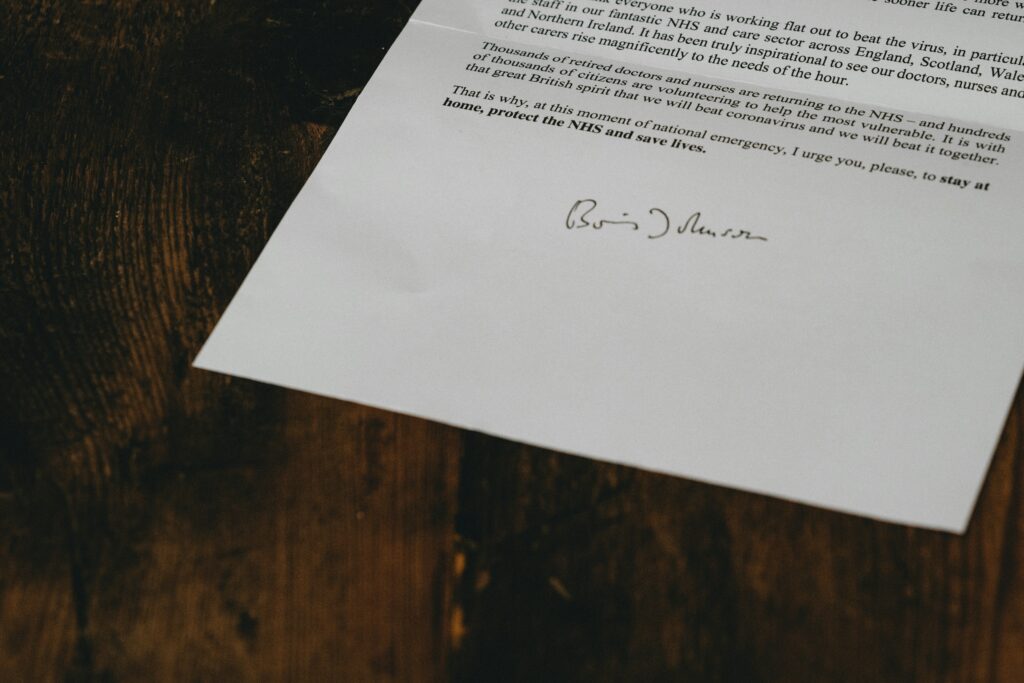 more w
sooner life can return
everyone who is working flat out to beat the virus, in particula
the staff in our fantastic NHS and care sector across England, Scotland, Wales
and Northern Ireland. It has been truly inspirational to see our doctors, nurses and
other carers rise magnificently to the needs of the hour.
Thousands of retired doctors and nurses are returning to the NHS – and hundreds
of thousands of citizens are volunteering to help the most vulnerable. It is with
that great British spirit that we will beat coronavirus and we will beat it together.
That is why, at this moment of national emergency, I urge you, please, to stay at
home, protect the NHS and save lives.
Boris Johnson